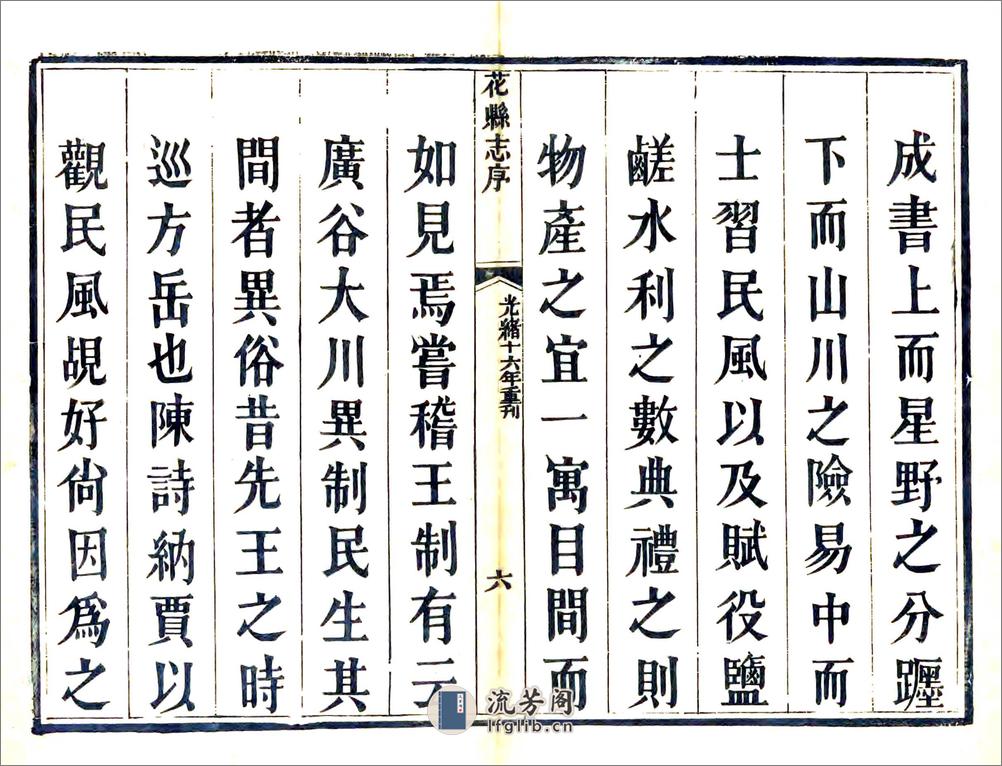 成書上而星野之分躔
下而山川之險易中而
士習民風以及賦役鹽
鹺水利之數典禮之則
物產之宜一寓目間而
花縣志序
光緒十六年重刊
六
如見焉嘗稽王制有云
廣谷大川異制民生其
間者異俗昔先王之時
巡方岳也陳詩納賈以
觀民風覘好尙因爲之
流芳阁
lfglib.cn